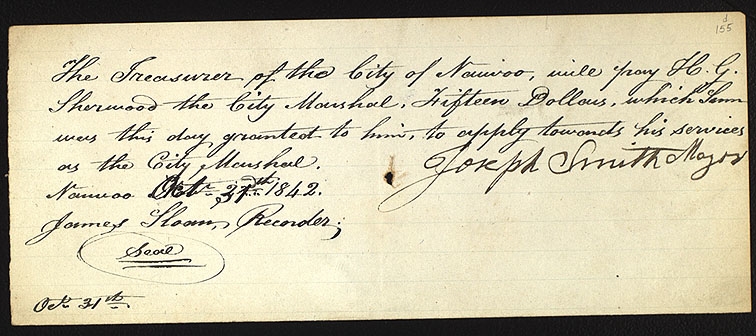 d
155
The Treasurer of the City of Nauvoo, will pay H. G.
Sherwood the City Marshal, Fifteen Dollars, which Sum
was this day granted to him, to apply towards his services
as the City Marshal.
Joseph Smith Mayor
Nauvoo Octr. 31st 1842.
James Sloan, Recorder;
Seal
Octr. 31th.